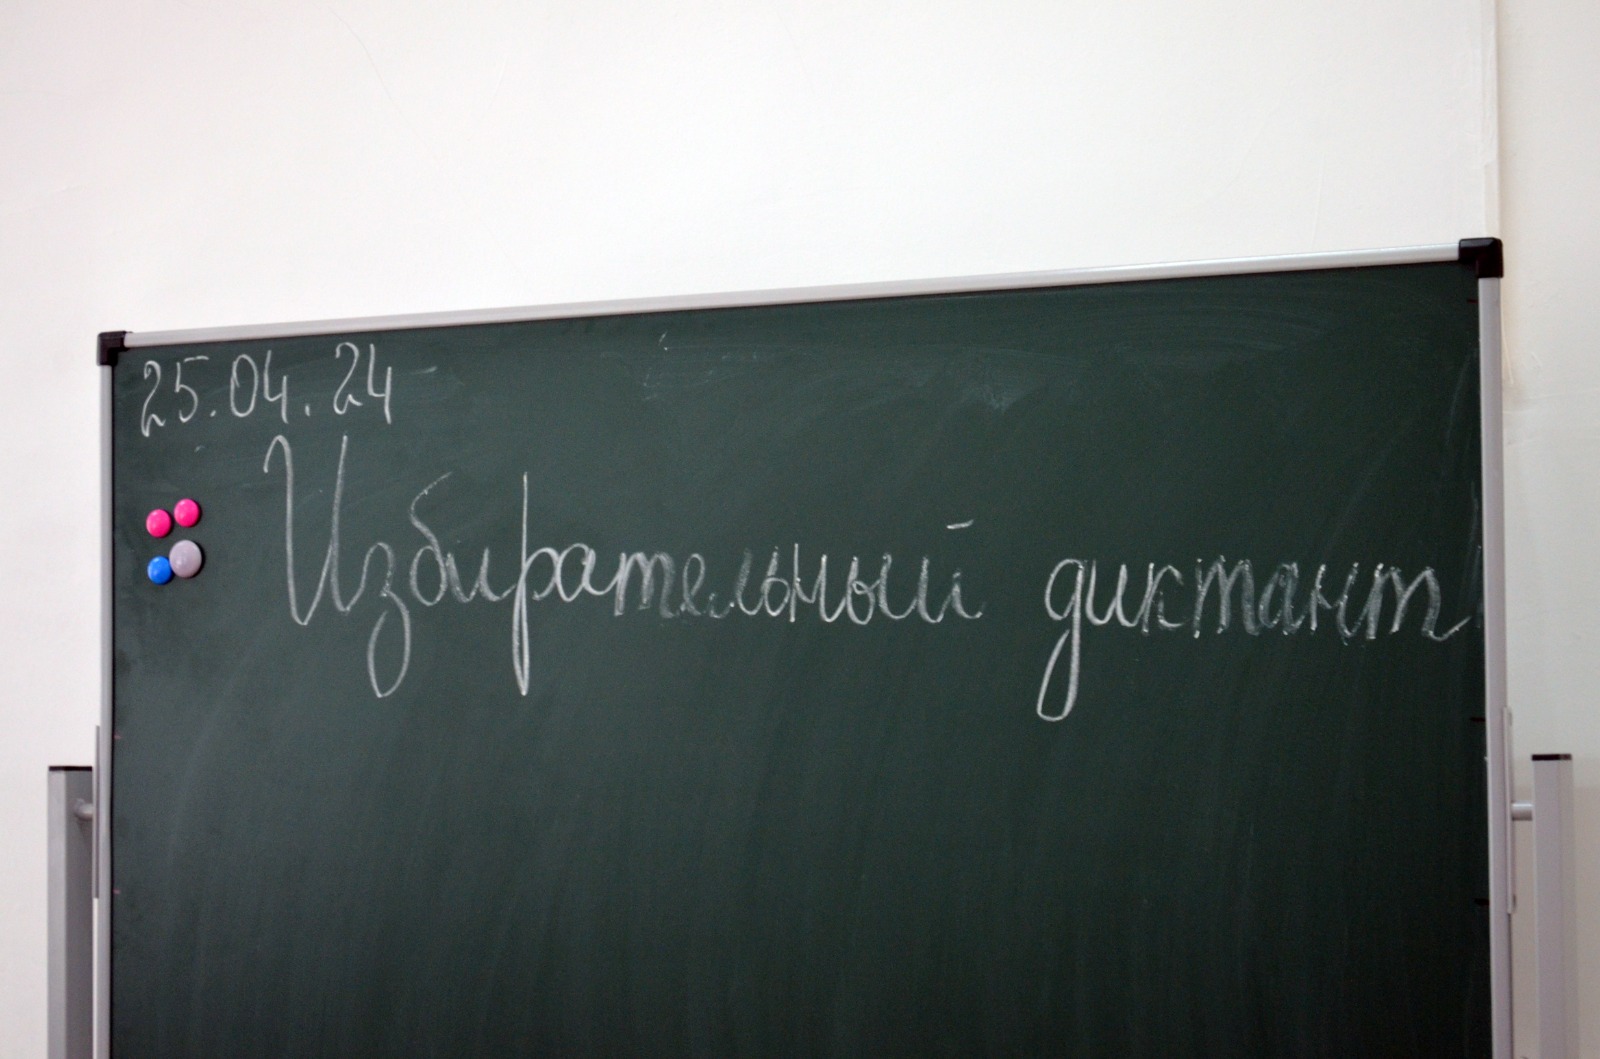 25.04.24
Избирательный диктант